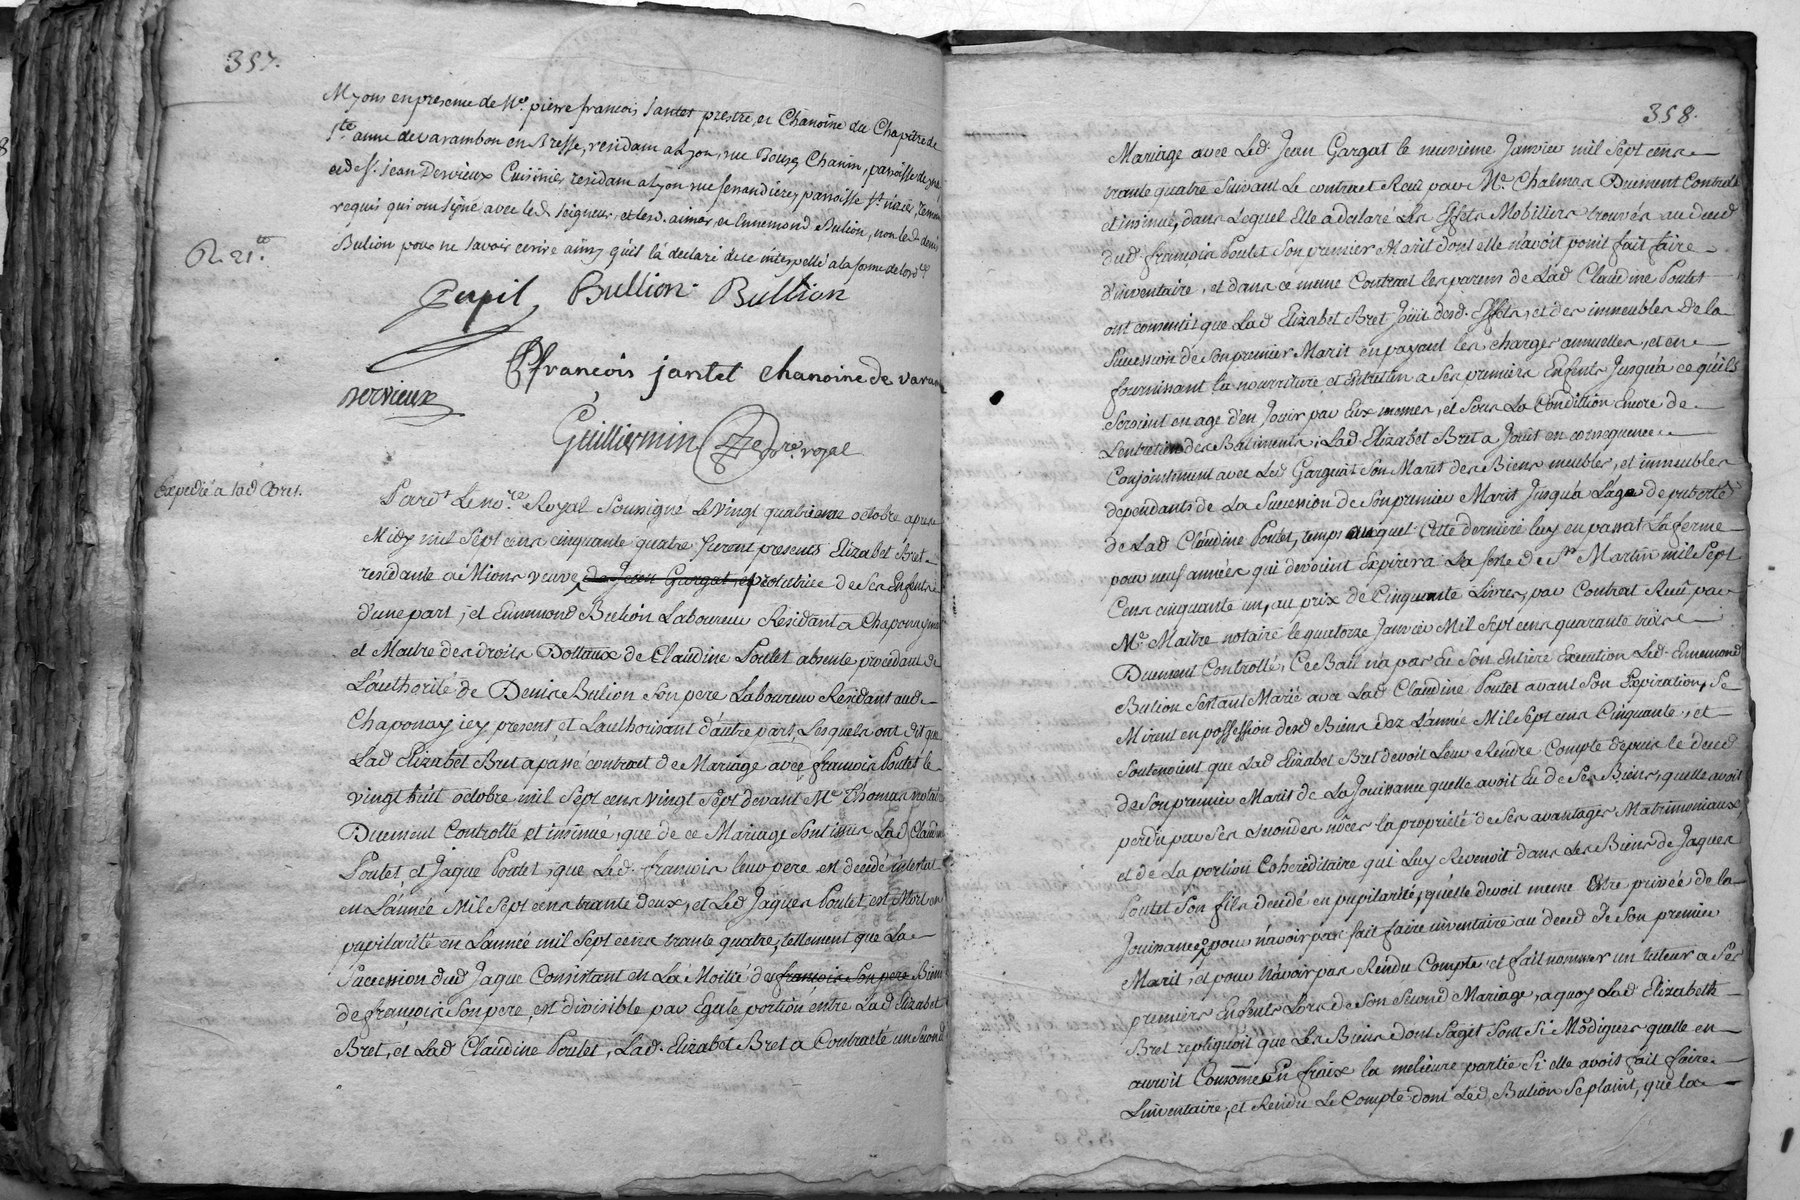 357.
Mions en presence de Me. pierre françois Jantet prestre, et Chanoine du Chapitre de
Ste anne de varambon en Bresse, residant a Lyon, rue Chanin, paroisse de
et de sr. Jean Dervieux Cuisinier residant a Lyon rue ferrandiere, parroisse st. nizier, temoins
requis qui ont signé avec led. seigneur, et lesd. aimar, et Ennemond Bulion, non led. denis
Bulion pour ne savoir ecrire ainsy quil la declaré de ce interpellé a la forme de lordce
R. 21.
Pupil Bullion. Bullion
françois jantet chanoine de varam
Dervieux
Guilliermin nore. royal
Expedié a lad Bret.
Pardt. Le nore. Royal Soussigné Le vingt quatrieme octobre apres
Midy mil Sept cens cinquante quatre furent presents Elizabet Bret
residante a Mions veuve de Jean Gargat, et tutrice de ses Enfents
d'une part, et Ennemond Bulion Laboureur Residant a Chaponnay
et Maitre des droits Dottaux de Claudine Poulet absente, procedant de
L'authorité de Denis Bulion Son pere Laboureur Residant aud
Chaponay icy present, et Lauthorisant d'autre part, Lesquels ont dit que
Lad Elizabet Bret a passé contract de Mariage avec françois Poulet le
vingt huit octobre mil Sept cens vingt Sept devant Me Thomas notaire
Duement Controllé et insinué, que de ce Mariage Sont issus Lad Claudine
Poulet et Jaque Poulet, que Led. françois leur pere est decedé intestat
en L'année Mil Sept cens trante deux, et Led Jaques Poulet est Mort en
pupilarité en Lannée mil Sept cens trante quatre, tellement que La
Succession dud Jaque Consistant en La Moitié des françois Son pere Biens
de françois Son pere, est divisible par Egale portion entre Lad Elizabet
Bret, et Lad Claudine Poulet, Lad. Elizabet Bret a Contracté un Second
358.
Mariage avec Led. Jean Gargat le neuvieme Janvier mil Sept cens
trante quatre Suivant Le contract Reçû par Me. Chalman Duement Controllé
et insinué, dans Lequel Elle a declaré Les Effets Mobiliers trouvés au deced
dud. françois Poulet Son premier Marit dont elle n'avoit point fait faire
d'inventaire, et dans ce meme Contract les parens de Lad Claudine Poulet
ont consentit que Lad Elizabet Bret Joüit desd. Effets, et des immeubles de la
Succession de Son premier Marit en payant les charges annuelles, et en
fournissant la nourriture et Entretien a Ses premiers Enfents Jusqu'a ce qu'ils
Seroient en age d'en Jouir par Eux memes, et Sous La Condition Encore de
Lentretien des Batiments; Lad. Elizabet Bret a Jouit en consequence
Conjointement avec Led Gargat Son Marit des Biens meubles, et immeubles
dependants de La Succession de Son premier Marit Jusqu'a L'age de puberté
de Lad Claudine Poulet, temps auquel Cette derniere luy en passat La ferme
pour neuf années qui devoient Expirer a La feste de St Martin mil Sept
Cens cinquante un, au prix de Cinquante Livres, par Contrat Reçû par
Me. Maitre notaire le quatorze Janvier Mil Sept cens quarante trois
Duement Controllé, Ce Bail n'a pas Eu Son Entiere Execution Led. Ennemond
Bulion S'estant Marié avec Lad Claudine Poulet avant Son Expiration, Se
Mirent en possession desd Biens dez L'année Mil Sept cens Cinquante, et
Soutenoient que Lad Elizabet Bret devoit Leur Rendre Compte depuis le deced
de Son premier Marit de La Jouissance quelle avoit Eu de Ses Biens, quelle avoit
perdu par Ses Secondes nôces la proprieté de Ses avantages Matrimoniaux,
et de La portion Cohereditaire qui Luy Revenoit dans Les Biens de Jaques
Poulet Son fils decedé en pupilarité, qu'elle devoit meme Etre privée de la
Jouissance, pour n'avoir pas fait faire inventaire au deced de Son premier
Marit, et pour N'avoir pas Rendu Compte et fait nommer un tuteur a Ses
premiers Enfents Lors de Son Second Mariage, a quoy Lad Elizabeth
Bret repliquoit que Les Biens dont S'agit Sont Si Modiques quelle en
auroit Consommé En fraix la melieure partie Si elle avoit fait faire
L'inventaire, et Rendu Le Compte dont Led Bulion Se plaint, que la